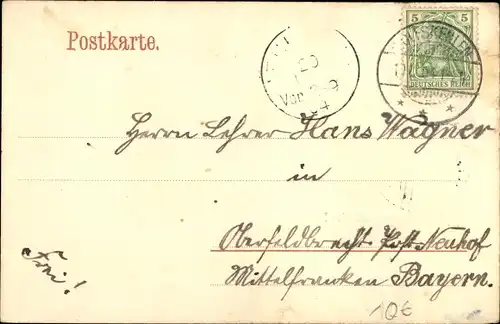 Postkarte.
5 5
DEUTSCHES REICH
20
Vor
4
Herrn Lehrer Hans Wagner
in
Oberfeldbrecht Post Neuhof
Mittelfranken Bayern.
Frei!
10€